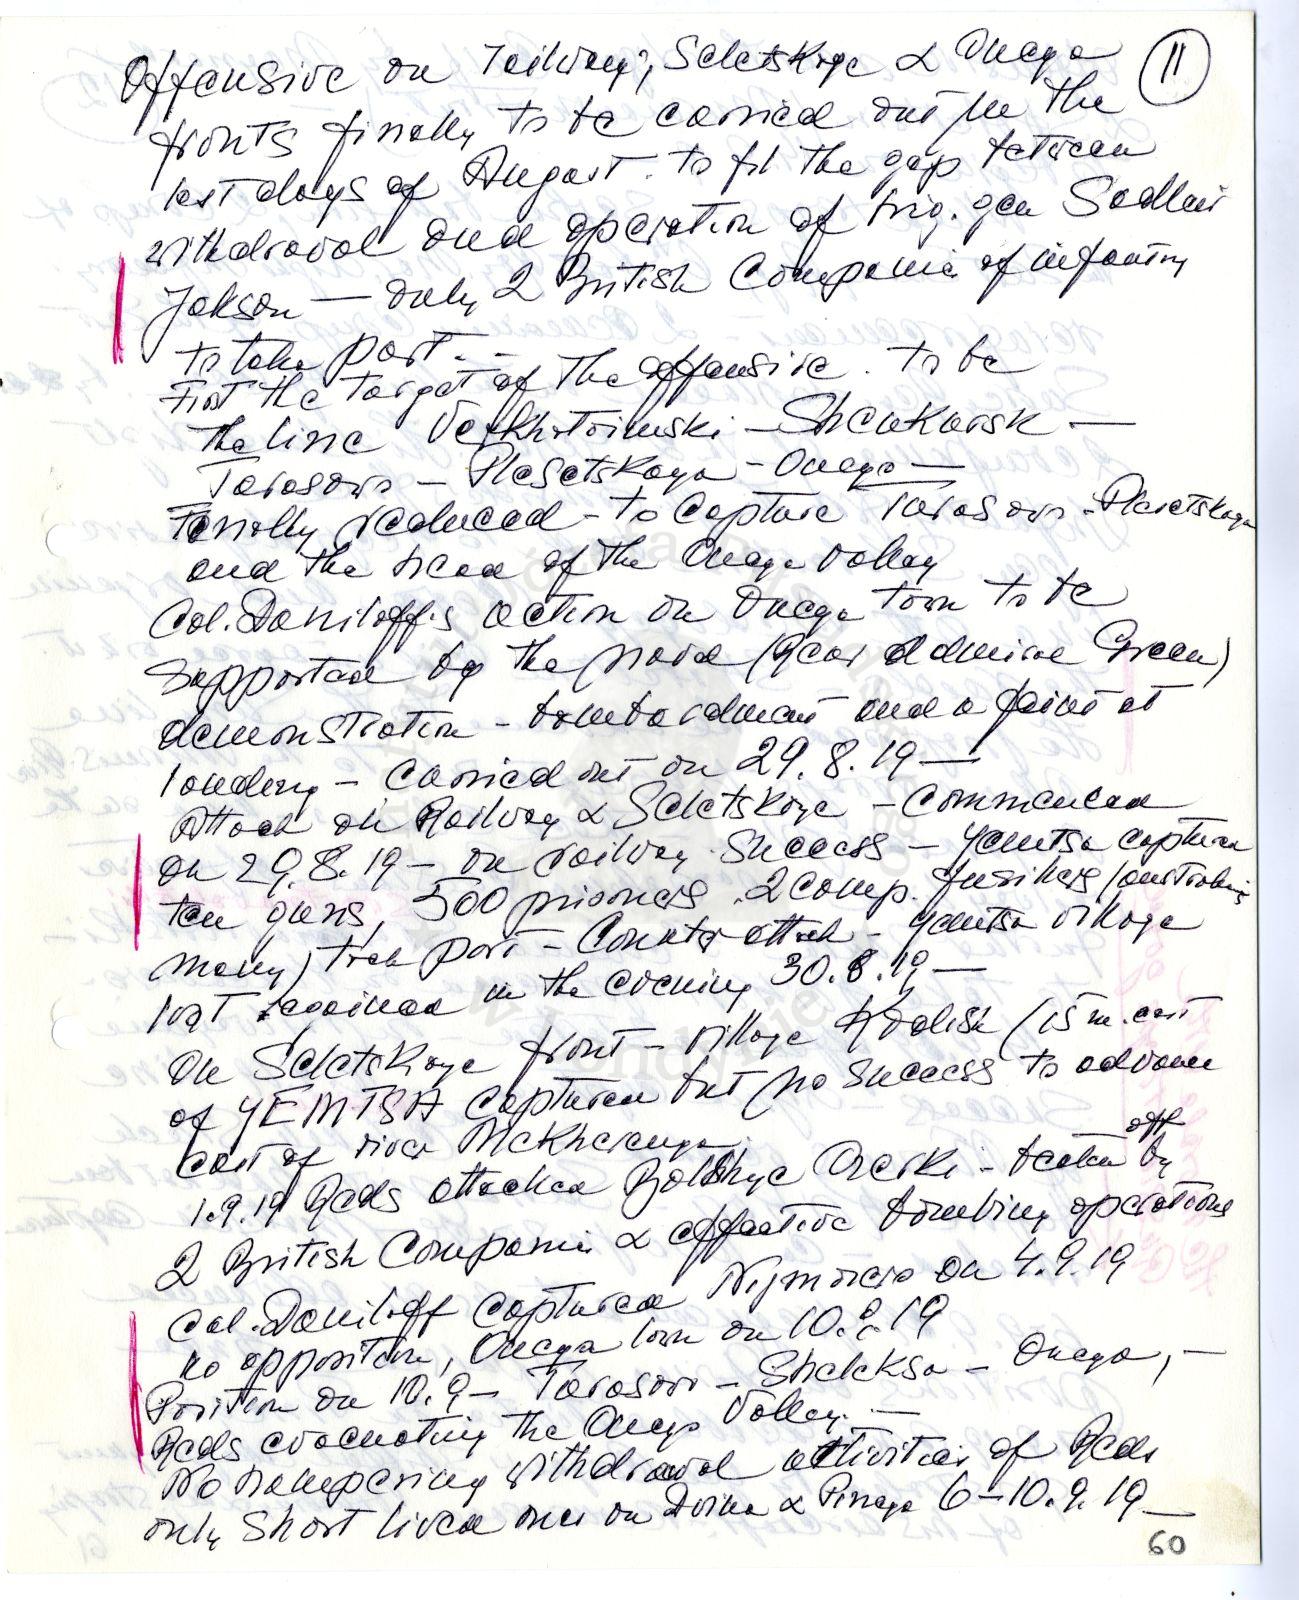 Offensive on railway, Seletskoye & Onega 11
fronts finally to be carried out in the
last days of August. to fil the gap between
withdrawal and operation of brig. gen Sadleir
Jakson — only 2 British Companie of infantry
to take part. - -
First the target of the offensive. to be
the line Verkhotoimski — Shenkursk —
Tarasovo — Plesetskaya — Onega —
Finally reduced - to capture Tarasovo - Plesetskaya
and the head of the Onega Valley
Col. Daniloff,s action on Onega town to be
supported by the naval (Rear Admiral Green)
demonstration - bombardment and a feint at
landing — carried out on 29.8.19 —
Attack on Railway & Seletskoye — Commenced
on 29.8.19 — on railway success — Yemtsa captured
ten guns, 500 prisoners. 2 comp. fusiliers (australians
many) took part — Counter attack — Yemtsa village
lost regained in the evening 30.8.19 —
On Seletskoye front — village Kodish (15 m. east
of YEMTSA captured but no success to advance
east of river Mekhrenga
1.9.19 Reds attacked Bolshye Ozerki — beaten off by
2 British Companie & effective bombing operations
Col. Daniloff captured on 4.9.19
no opposition, Onega town on 10.9.19
Position on 10.9 — Tarasovo — Sheleksa — Onega, —
Reds evacuating the Onega Valley. —
No hampering withdrawal activities of Reds
only short lived ones on Dvina & Pinega 6—10.9.19 —
60